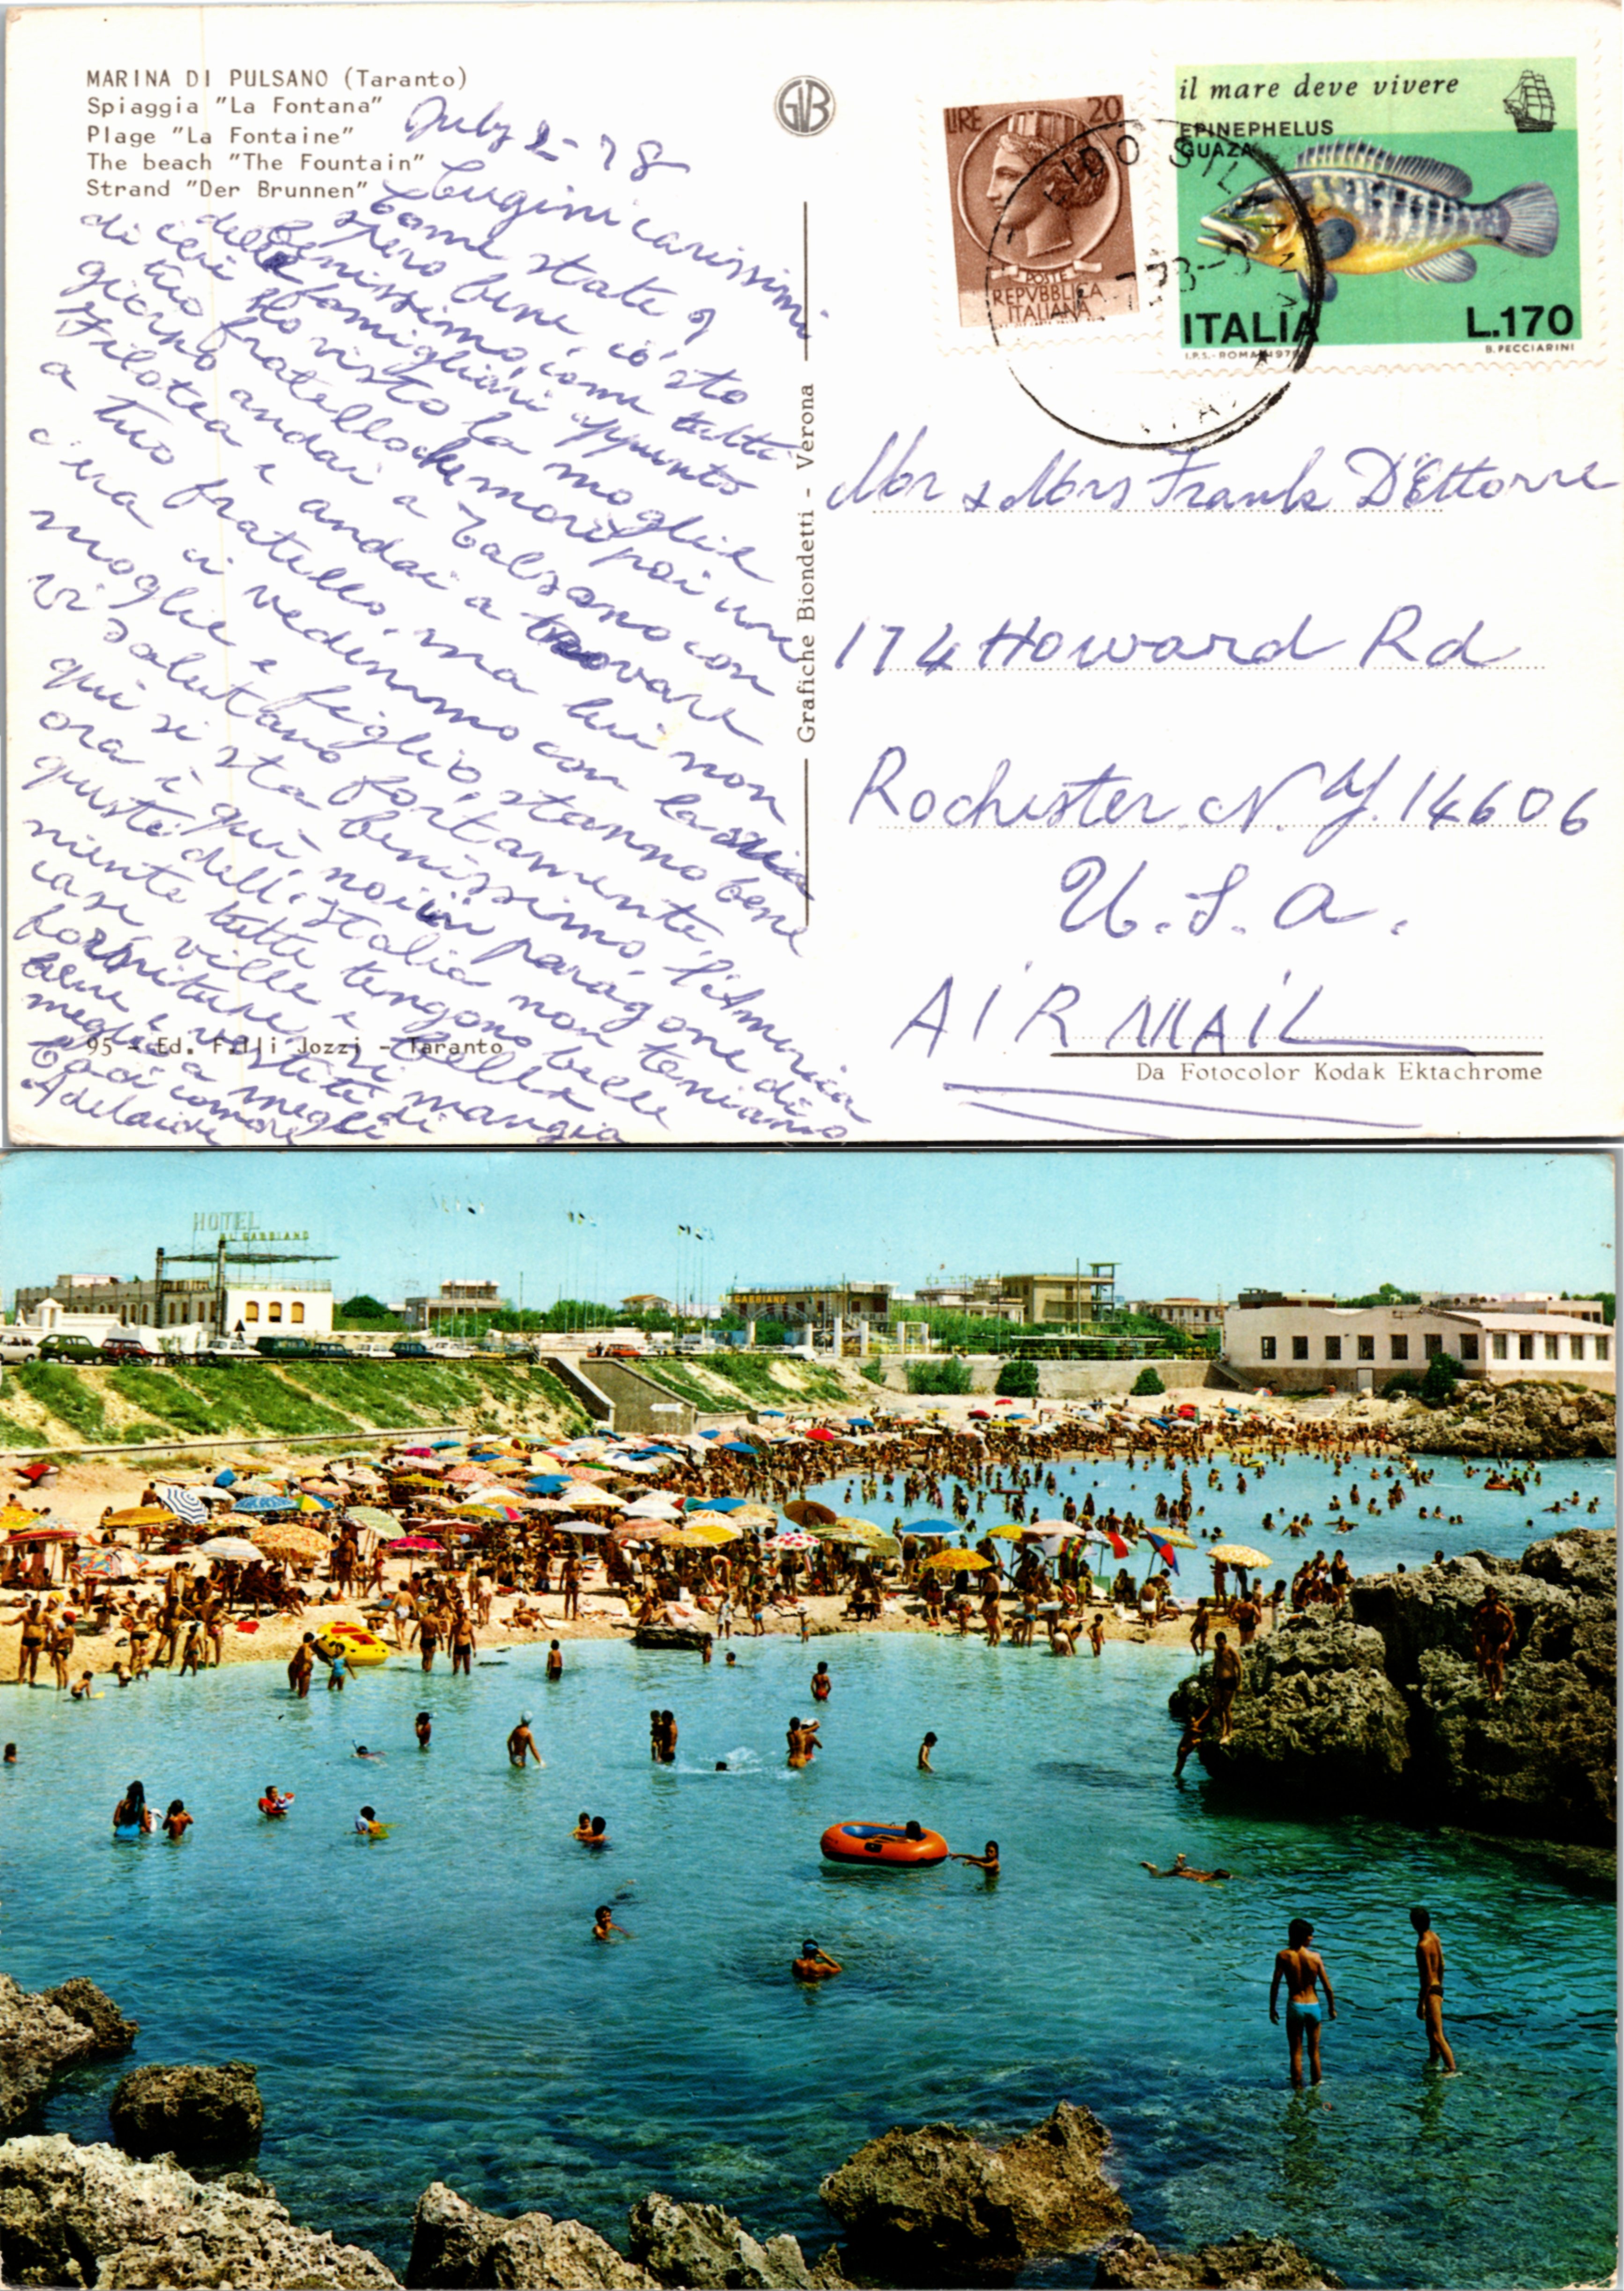 MARINA DI PULSANO (Taranto)
Spiaggia "La Fontana"
Plage "La Fontaine"
The beach "The Fountain"
Strand "Der Brunnen"
July 2-78
Cugini carissimi
Come state?
spero bene, io sto
benissimo, come tutti
della famigliari appunto
di ieri ho visto la moglie
tuo fratello che morì poi un
giorno andai a Talsano con
Filotea e andai a trovare
a tuo fratello, ma lui non
c'era ci vedemmo con la sua
moglie e figlio, stanno bene
vi salutano fortamente,
qui si sta benissimo. l'America
ora è qui, noi in paragone di
questi dell'Italia non teniamo
niente tutti tengono belle
case, ville e bella
forniture, si mangia
bene e vestiti di
meglio a meglio
Baci
Adelaide
95 - Ed. F.lli Jozzi - Taranto
GVB
Grafiche Biondetti - Verona
LIRE 20
POSTE
REPVBBLICA
ITALIANA
il mare deve vivere
EPINEPHELUS
GUAZA
ITALIA L.170
I.P.S.-ROMA-197
B. PECCIARINI
LIDO SIL
Mr & Mrs Frank D'Ettorre
174 Howard Rd
Rochester N.Y. 14606
U.S.A.
AIR MAIL
Da Fotocolor Kodak Ektachrome
HOTEL
AL GABBIANO
GABBIANO